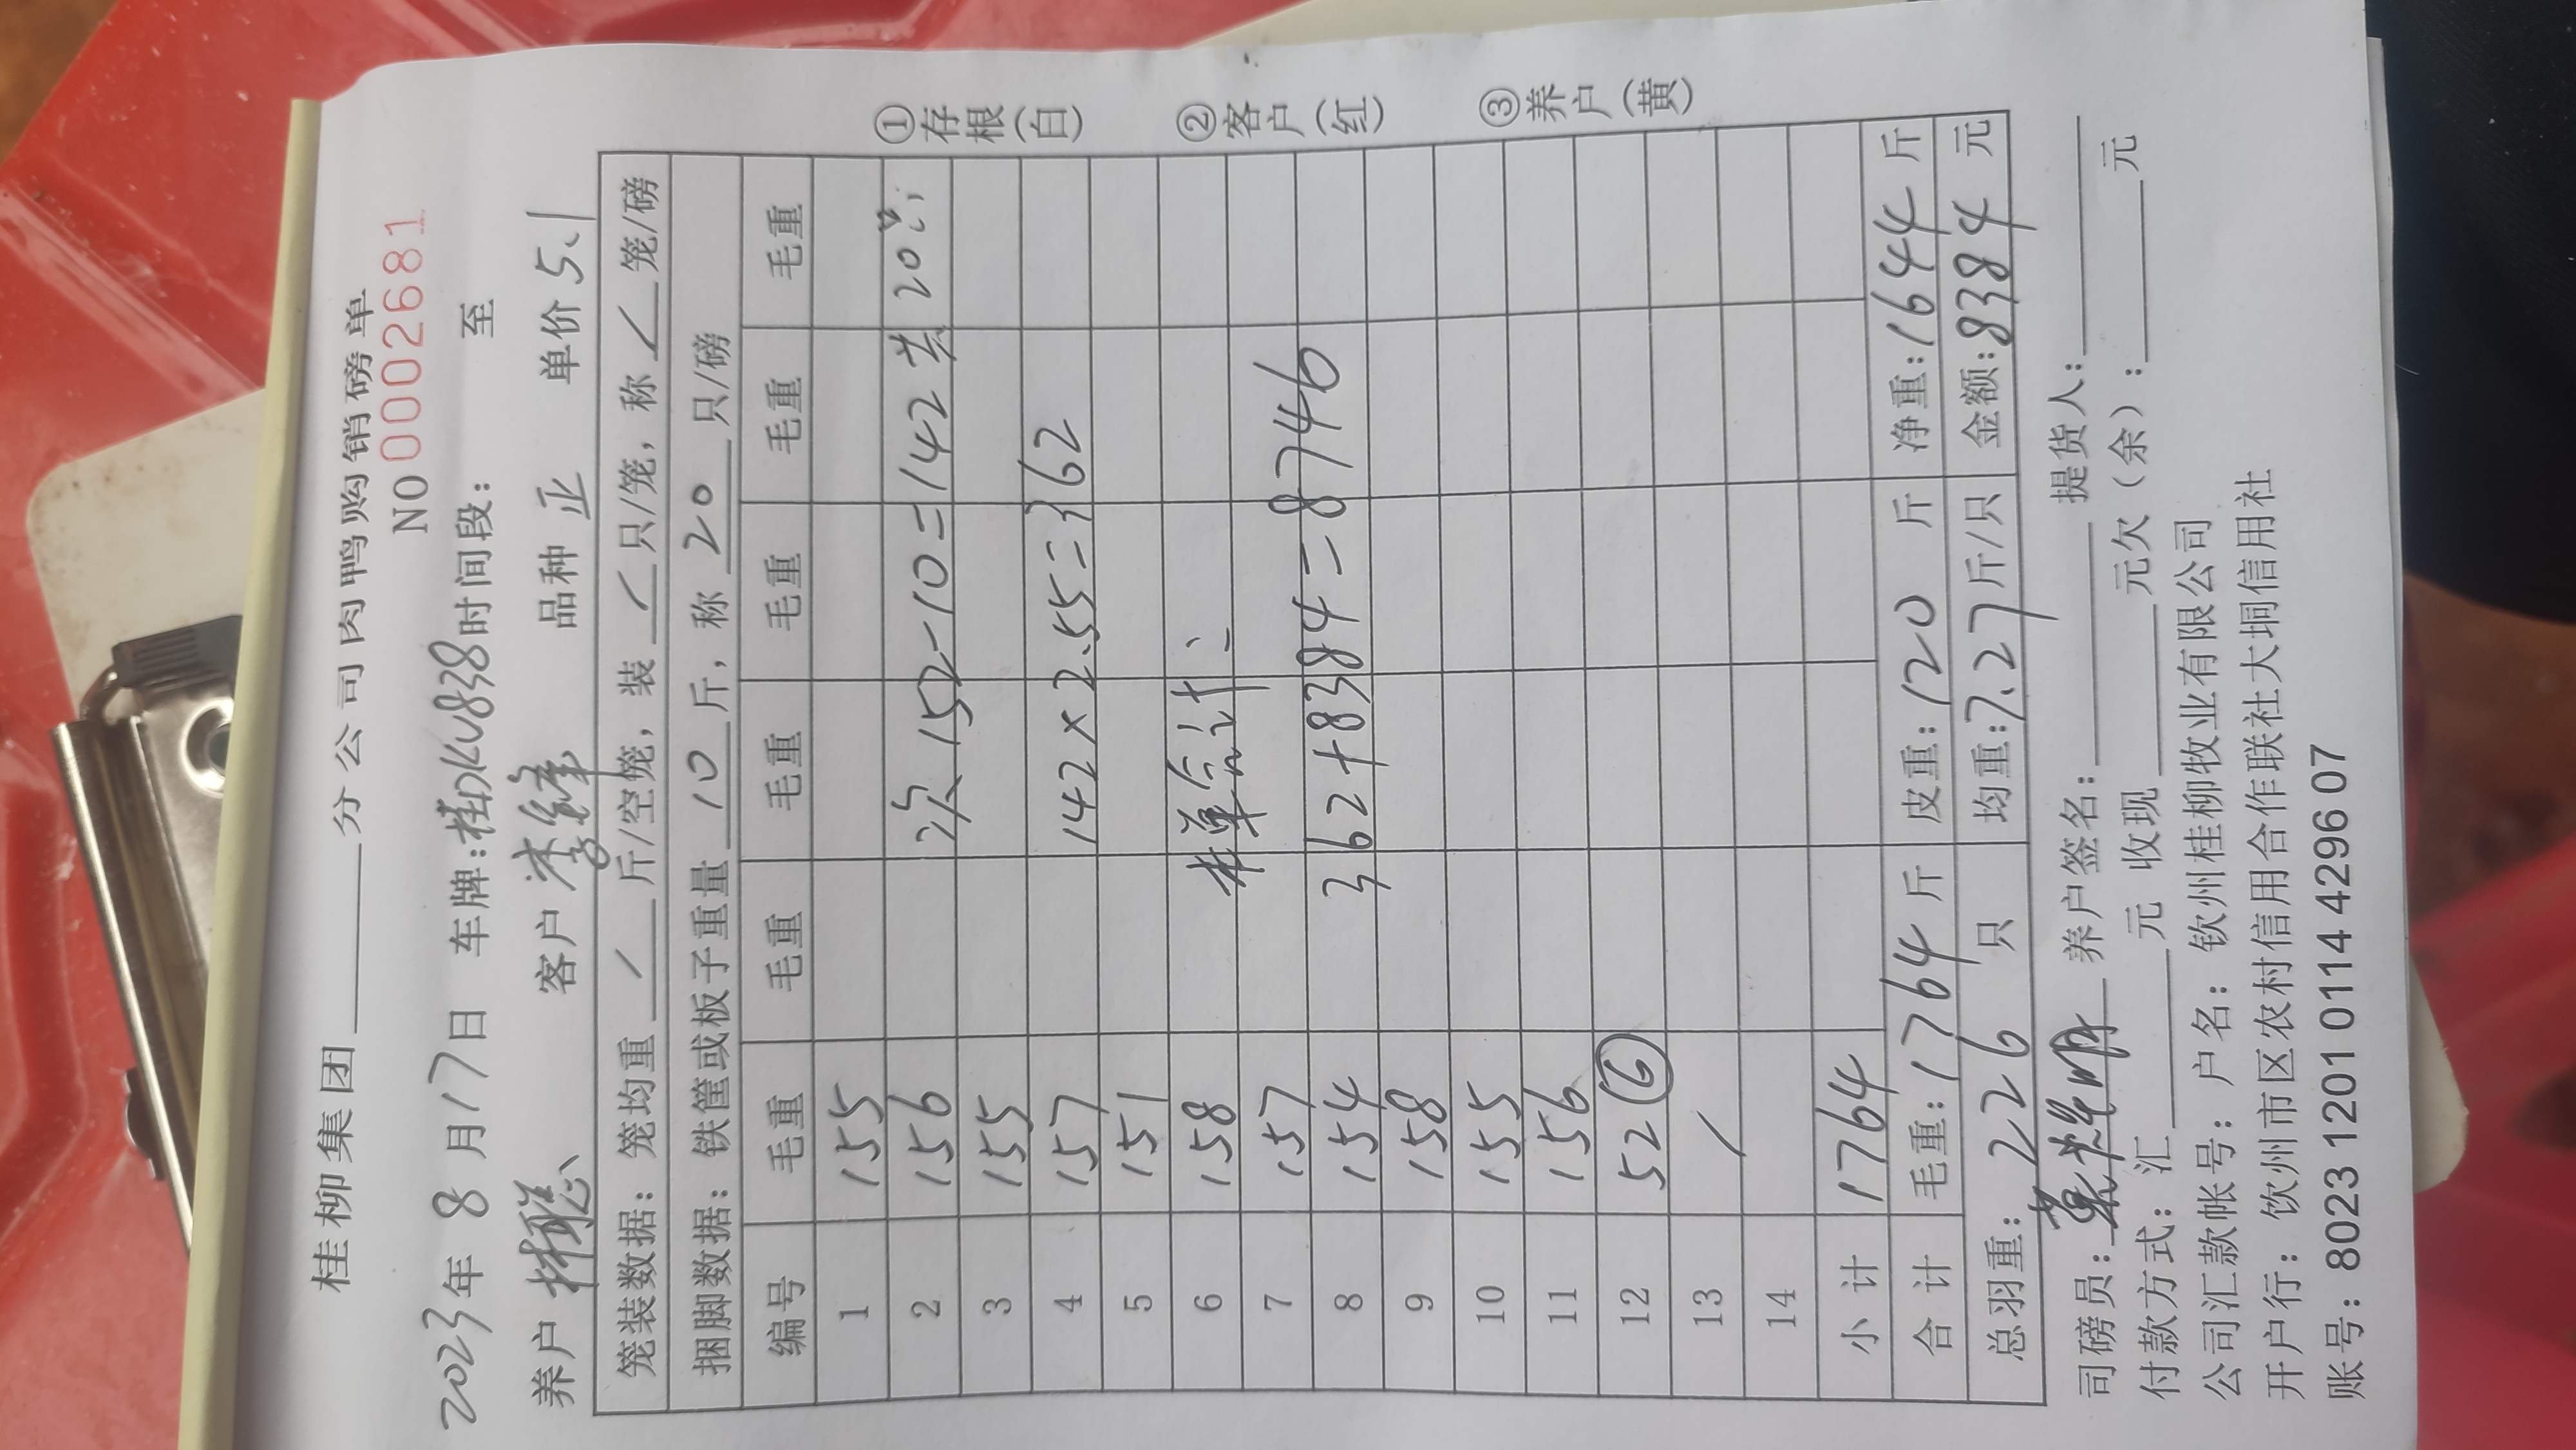 桂柳集团________分公司肉鸭购销磅单
NO 0002681
2023年 8 月17日 车牌:桂DKV838时间段: 至
养户 林聪 客户 李锋 品种 正 单价 5.1
笼装数据: 笼均重 / 斤/空笼, 装 / 只/笼, 称 / 笼/磅
捆脚数据: 铁筐或板子重量 10 斤, 称 20 只/磅
编号 毛重 毛重 毛重 毛重 毛重 毛重
1 155
2 156 次 152-10=142 共 20只
3 155
4 157 142×2.55=362
5 151
6 158 单合计:
7 157
8 154 362+8384=8746
9 158
10 155
11 156
12 52 (6)
13 /
14
小 计 1764
合 计 毛重:1764 斤 皮重:120 斤 净重:1644 斤
总羽重: 226 只 均重:7.27 斤/只 金额:8384 元
司磅员: 养户签名:________ 提货人:________
付款方式: 汇________元 收现________元欠(余):________元
公司汇款帐号: 户名: 钦州桂柳牧业有限公司
开户行: 饮州市区农村信用合作联社大垌信用社
账号: 8023 1201 0114 4296 07
①存根(白)
②客户(红)
③养户(黄)